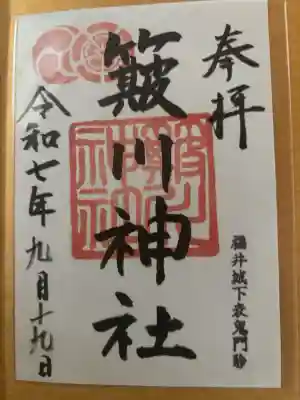 奉拝
簸川神社
福井城下表鬼門除
令和七年九月十九日